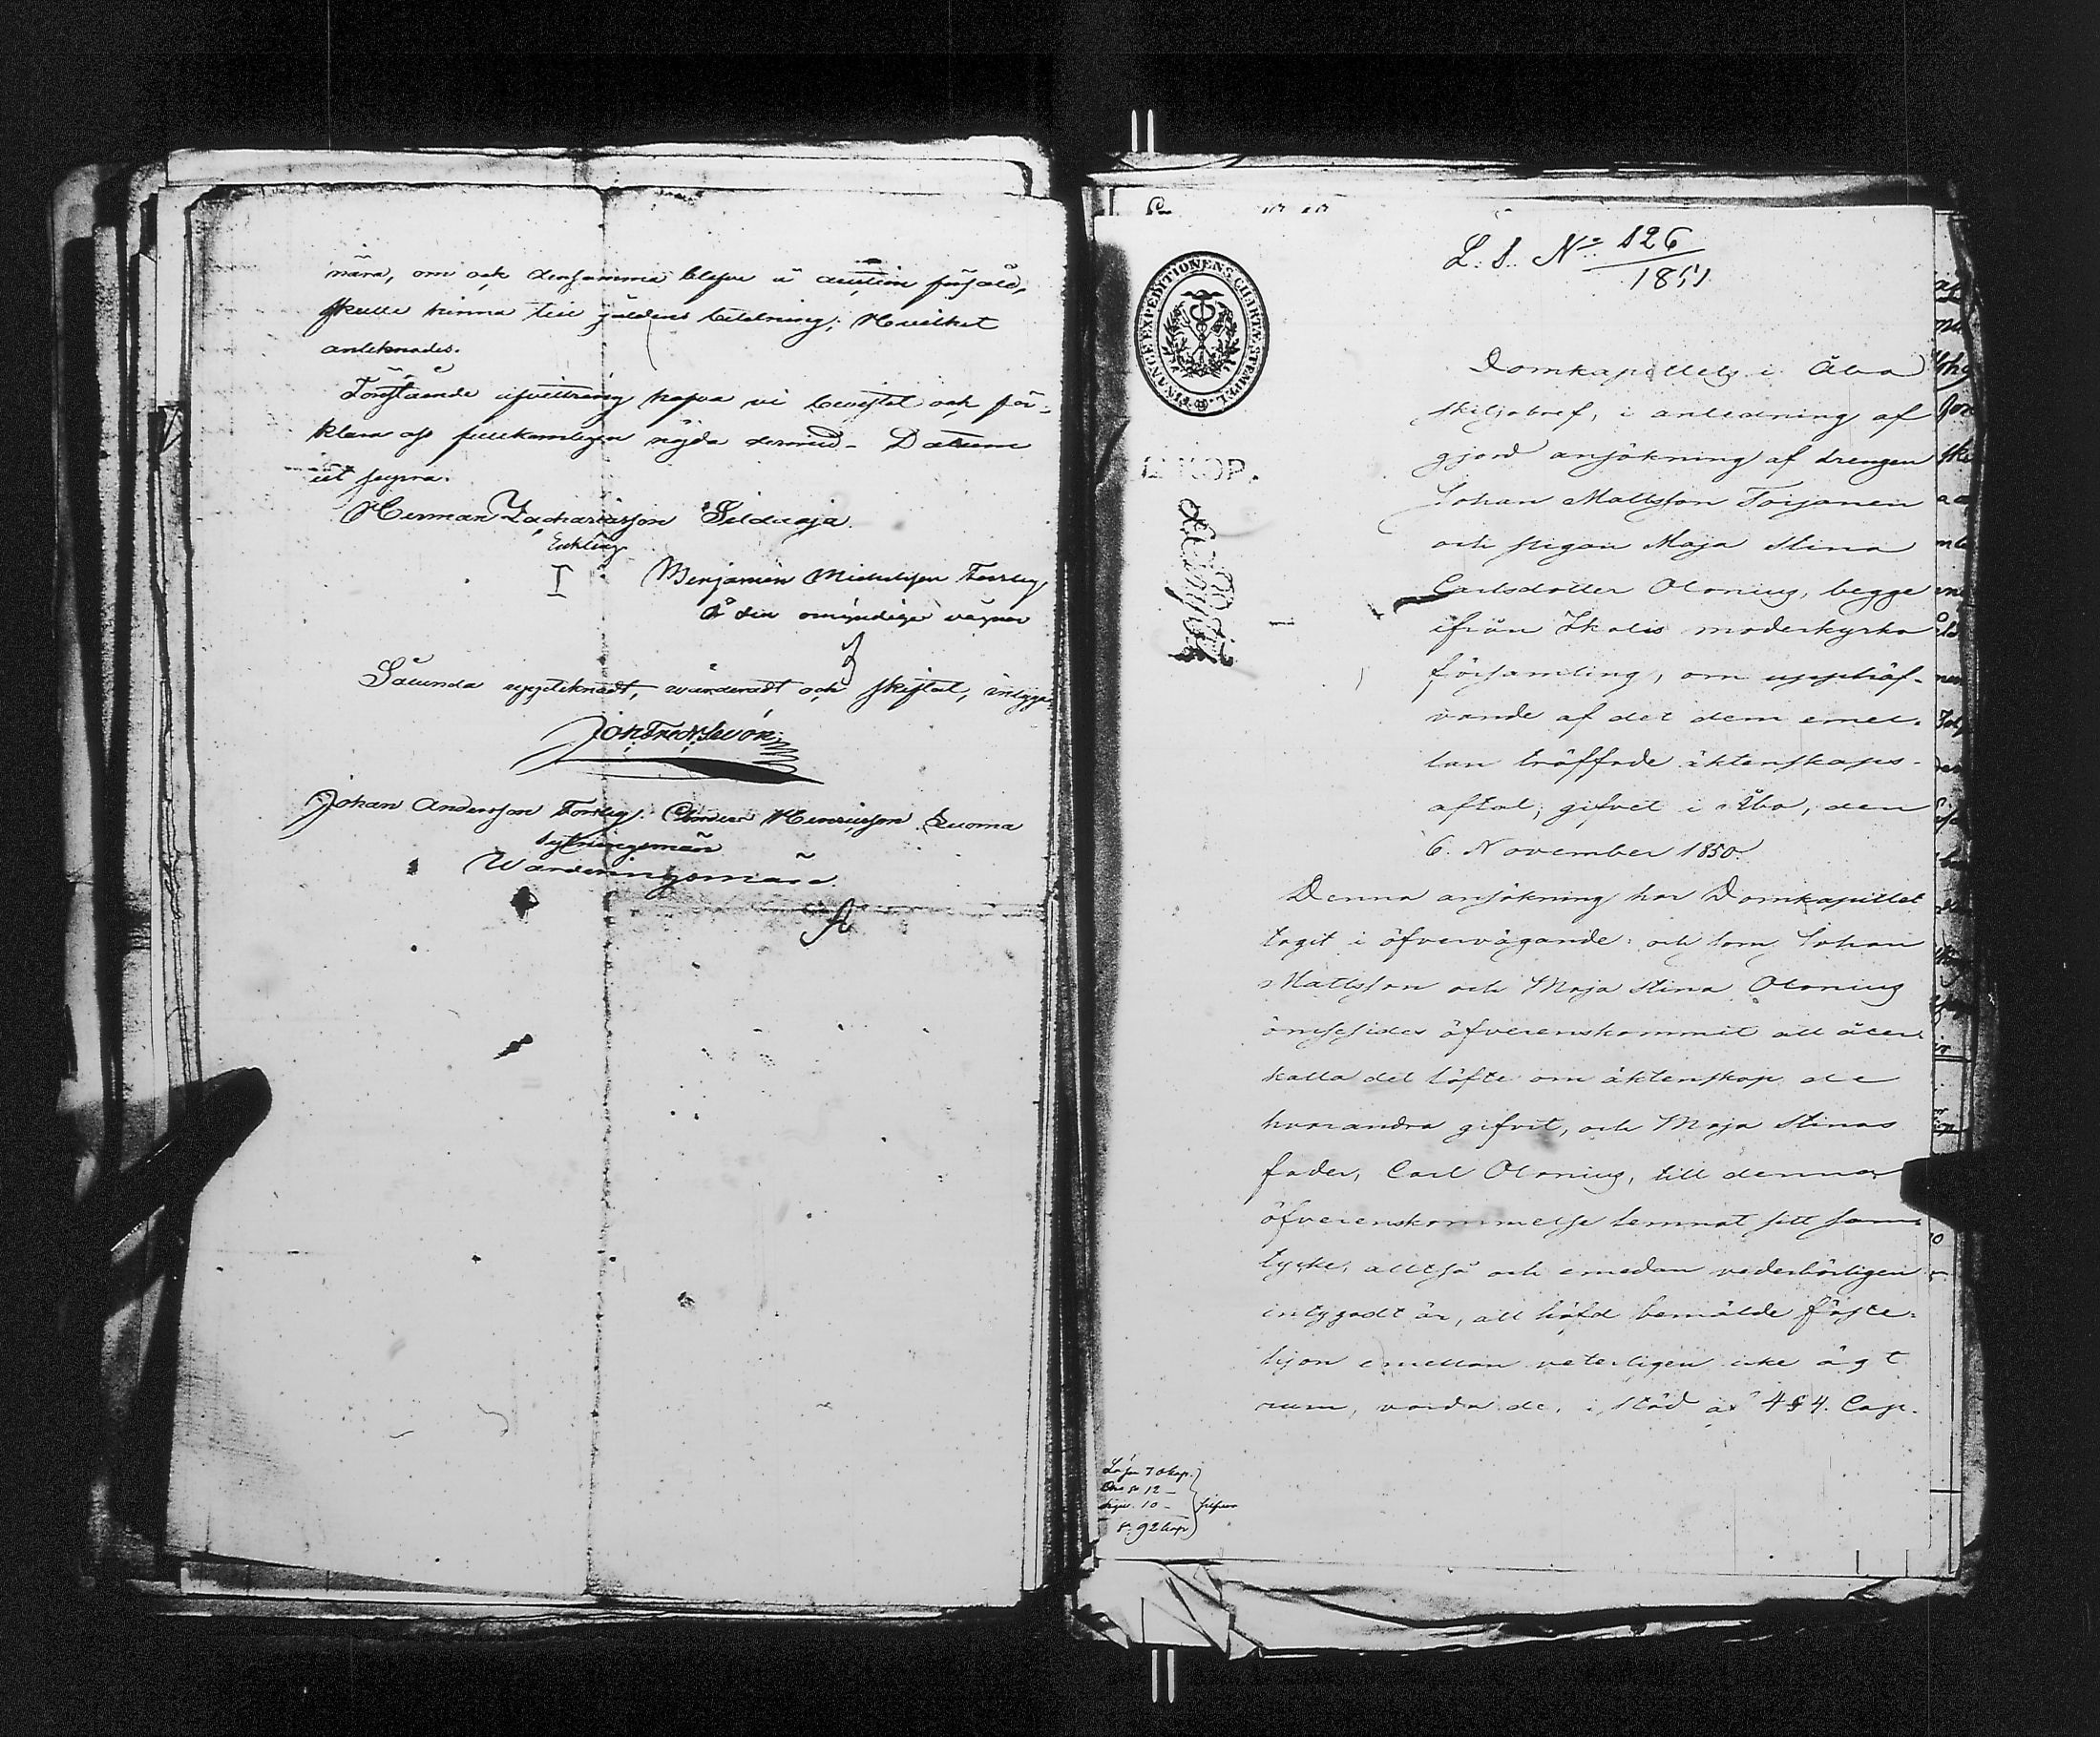 nära, om och densamma blefve å auction försåld,
skulle hinna till gäldens betalning; Hvilket
antecknades.
Förestående afvittring hafva vi bevistat och för-
klara oss fullkomligen nöjda dermed. Datum
ut supra.
Herman Zachariasson Sildeoja
Enkling
Benjamin Michelsson Torsby
Å den omyndiges vägnar
Sålunda uppteknadt, värderadt och skiftat, intyga
Joh Fredr Levón
Johan Andersson Torsby. Henricsson Luoma
Sytningsman
Warderingsmän.
L. S. No 126
1851
Domkapitlets i Åbo
skiljobref, i anledning af
gjord ansökning af drengen
Johan Mattsson Torjanen
och pigan Maja Stina
Carlsdotter Olonius, begge
ifrån Ikalis moderkyrko
församling, om upphäf-
vande af det dem emel-
lan träffade äktenskaps-
aftal; gifvet i Åbo, den
6. November 1850.
Denna ansökning har Domkapitlet
tagit i öfvervägande: och som Johan
Mattsson och Maja Stina Olonius
ömsesides öfverenskommit att åter-
kalla det löfte om äktenskap de
hvarandra gifvit, och Maja Stinas
fader, Carl Olonius, till denna
öfverenskommelse lemnat sitt sam-
tycke, alltså och emedan vederbörligen
intygadt är, att häfd bemälde fäste-
hjon emellan veterligen icke ägt
rum, varda de, i stöd af 4 § 4. Cap.
FINANCE EXPEDITIONENS CHARTÆ STEMPEL.
12 KOP.
Lösen 70 kop.
12 —
10 —
S:r 92 kop